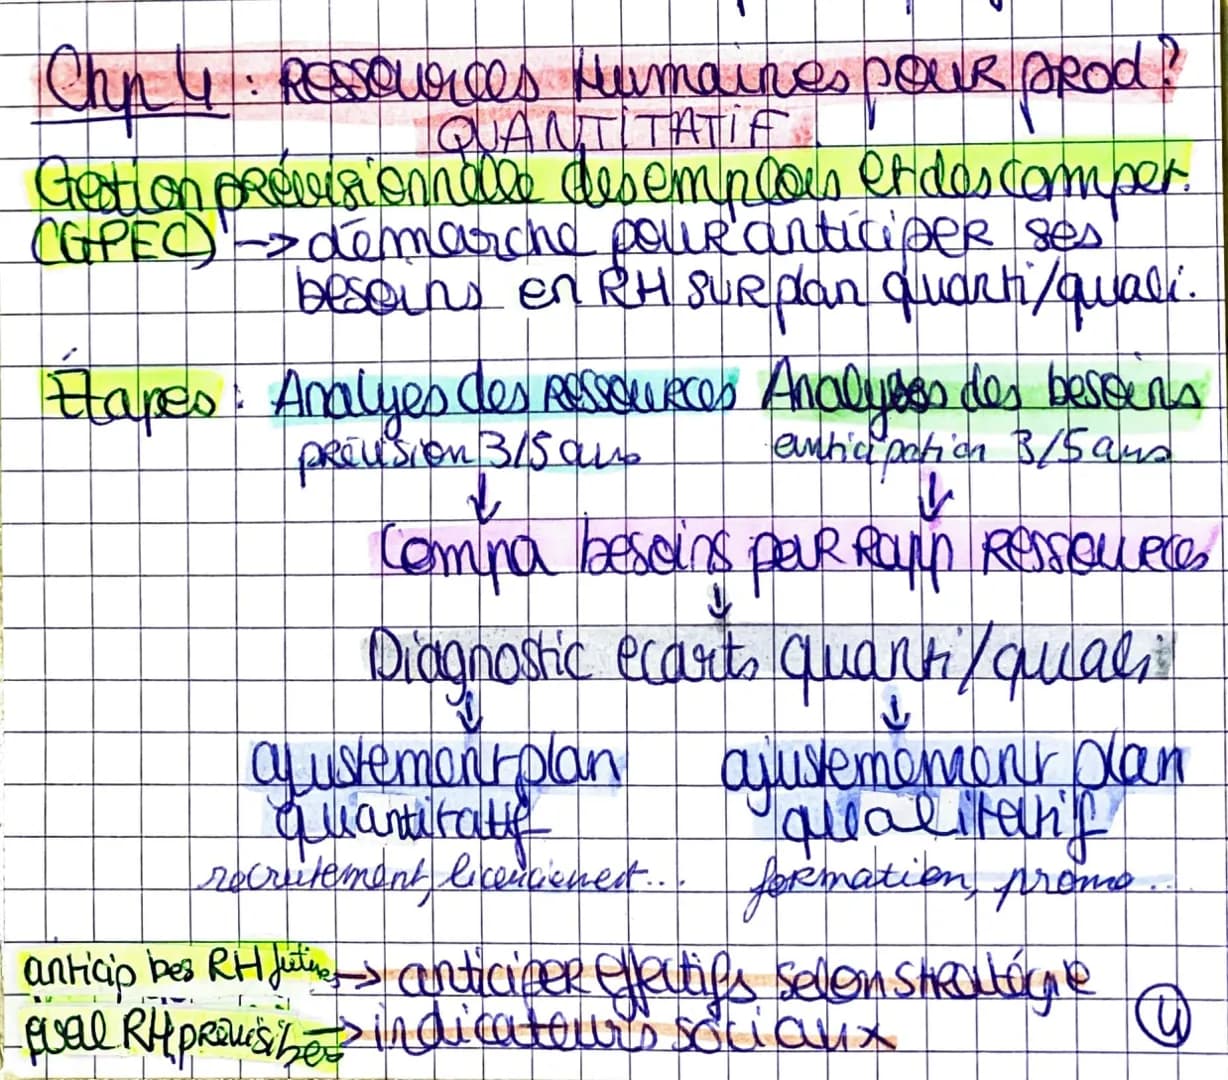 Chp 4 : Ressources Humaines pour prod ?
QUANTITATIF
Gestion prévisionnelle des emplois et des compet.
(GPEC) -> démarche pour anticiper ses
besoins en RH sur plan quanti/quali.
Étapes : Analyes des ressources Analyses des besoins
prévision 3/5 ans anticipation 3/5 ans
↓ ↓
Compa besoins par rapp ressources
↓
Diagnostic ecarts quanti/quali
↓ ↓
ajustement plan ajustemement plan
quantitatif qualitatif
recrutement, licenciement... formation, promo...
anticip bes RH futurs -> anticiper effectifs selon stratégie
RH prévisibles -> indicateurs sociaux
4